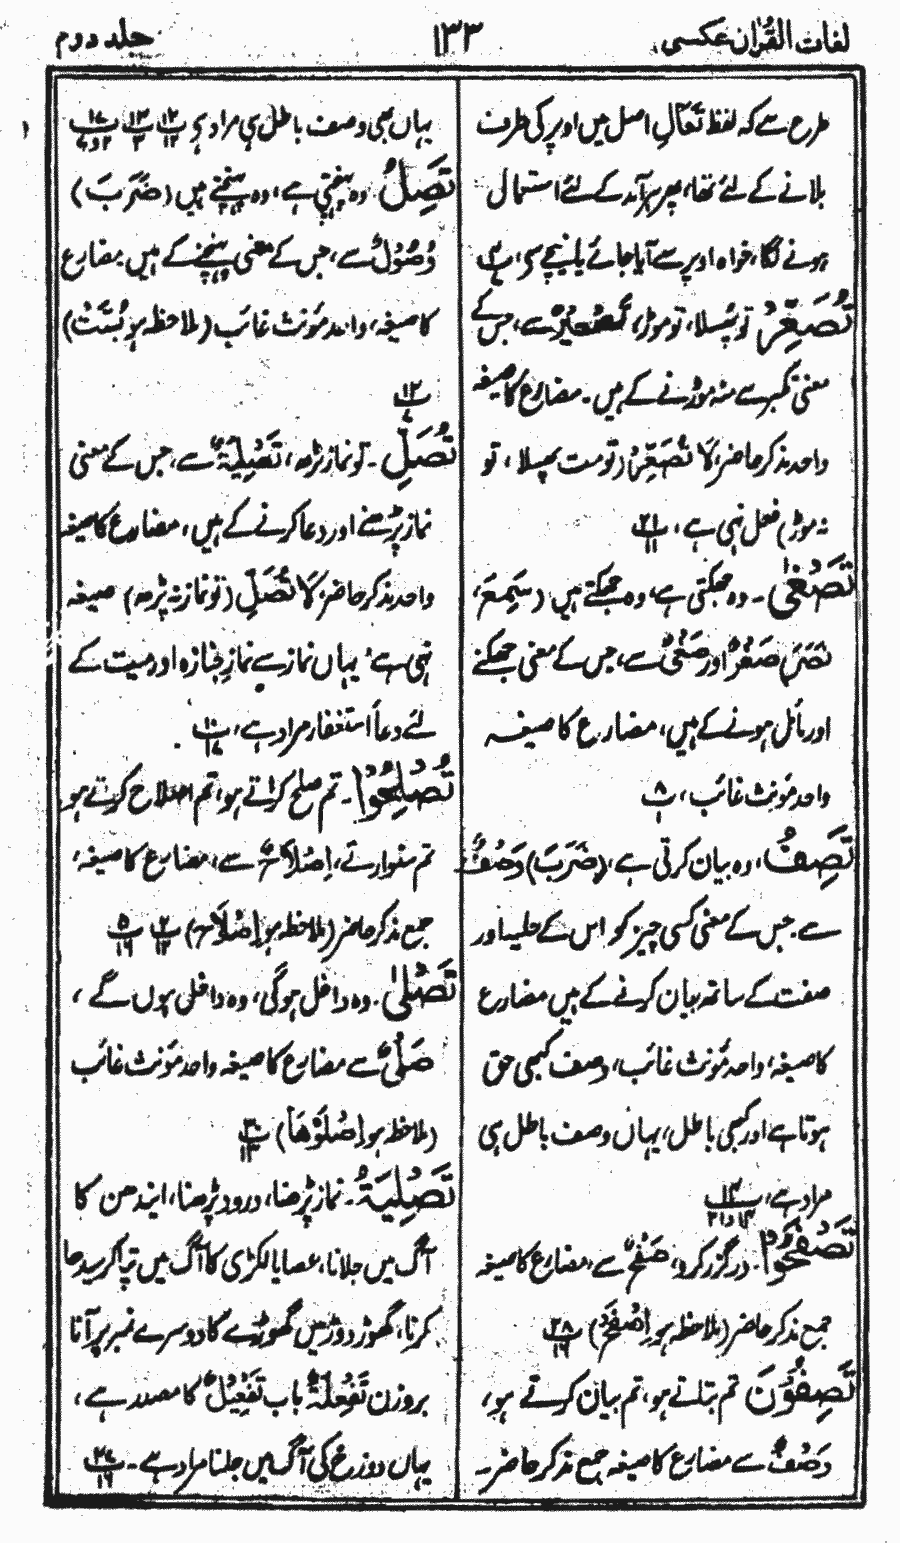 لغات القرآن عکسی ۱۳۳ جلد دوم
طرح سے کہ لفظ تَعَالِ اصل میں اوپر کی طرف
بلانے کے لئے تھا، پھر ہر آمد کے لئے استعمال
ہونے لگا، خواہ اوپر سے آیا جائے یا نیچے سے،
تُصَعِّرْ تو پھسلا، تو موڑ، تَصْعِیْرٌ سے، جس کے
معنی تکبر سے منہ موڑنے کے ہیں۔ مضارع کا صیغہ
واحد مذکر حاضر، لَا تُصَعِّرْ (تو مت پھسلا، تو
نہ موڑ) فعل نہی ہے، ۲۱/۱۱
تَصْغٰی۔ وہ جھکتی ہے، وہ جھکتے ہیں (سَمِعَ،
نَصَرَ) صَغْوٌ اور صَغْیٌ سے، جس کے معنی جھکنے
اور مائل ہونے کے ہیں، مضارع کا صیغہ
واحد مؤنث غائب، ۸/۱
تَصِفُ، وہ بیان کرتی ہے، (ضَرَبَ) وَصْفٌ
سے۔ جس کے معنی کسی چیز کو اس کے حلیہ اور
صفت کے ساتھ بیان کرنے کے ہیں مضارع
کا صیغہ، واحد مؤنث غائب، وصف کبھی حق
ہوتا ہے اور کبھی باطل، یہاں وصف باطل ہی
مراد ہے،
تَصْفَحُوْا۔ درگزر کرو، صَفْحٌ سے، مضارع کا صیغہ
جمع مذکر حاضر (ملاحظہ ہو اِصْفَحْ) ۲۸/۱۶
تَصِفُوْنَ تم بتلاتے ہو، تم بیان کرتے ہو،
وَصْفٌ سے مضارع کا صیغہ جمع مذکر حاضر۔
یہاں بھی وصف باطل ہی مراد ہے ۱۲/۱۲ ۱۳/۳ ۱۷/۲و۷
تَصِلُ وہ پہنچتی ہے، وہ پہنچتے ہیں (ضَرَبَ)
وُصُوْلٌ سے، جس کے معنی پہنچنے کے ہیں مضارع
کا صیغہ، واحد مؤنث غائب (ملاحظہ ہو بُسَّتْ)
۱۲/۷
تُصَلِّ۔ تو نماز پڑھ، تَصْلِیَۃٌ سے، جس کے معنی
نماز پڑھنے اور دعا کرنے کے ہیں، مضارع کا صیغہ
واحد مذکر حاضر، لَا تُصَلِّ (تو نماز نہ پڑھ) صیغہ
نہی ہے، یہاں نماز سے نمازِ جنازہ اور میت کے
لئے دعا استغفار مراد ہے، ۱۰/۱۷
تُصْلِحُوْا۔ تم صلح کراتے ہو، تم اصلاح کرتے ہو
تم سنوارتے، اِصْلَاحٌ سے، مضارع کا صیغہ،
جمع مذکر حاضر (ملاحظہ ہو اِصْلَاح) ۲/۱۲ ۵/۱۶
تَصْلٰی۔ وہ داخل ہوگی، وہ داخل ہوں گے،
صَلْیٌ سے مضارع کا صیغہ واحد مؤنث غائب
(ملاحظہ ہو اِصْلَوْھَا) ۳۰/۱۳
تَصْلِیَۃُ۔ نماز پڑھنا، درود پڑھنا، ایندھن کا
آگ میں جلانا، عصا یا لکڑی کا آگ میں تپا کر سیدھا
کرنا، گھوڑ دوڑ میں گھوڑے کا دوسرے نمبر پر آنا
بروزن تَفْعِلَۃٌ باب تَفْعِیْلٌ کا مصدر ہے،
یہاں دوزخ کی آگ میں جلنا مراد ہے۔ ۲۷/۱۶